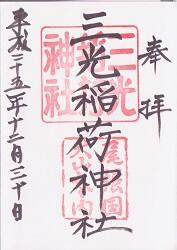 奉拝
三光稲荷神社
三光
稲荷
神社
尾張国
犬山城内
平成二十五年十二月三十日